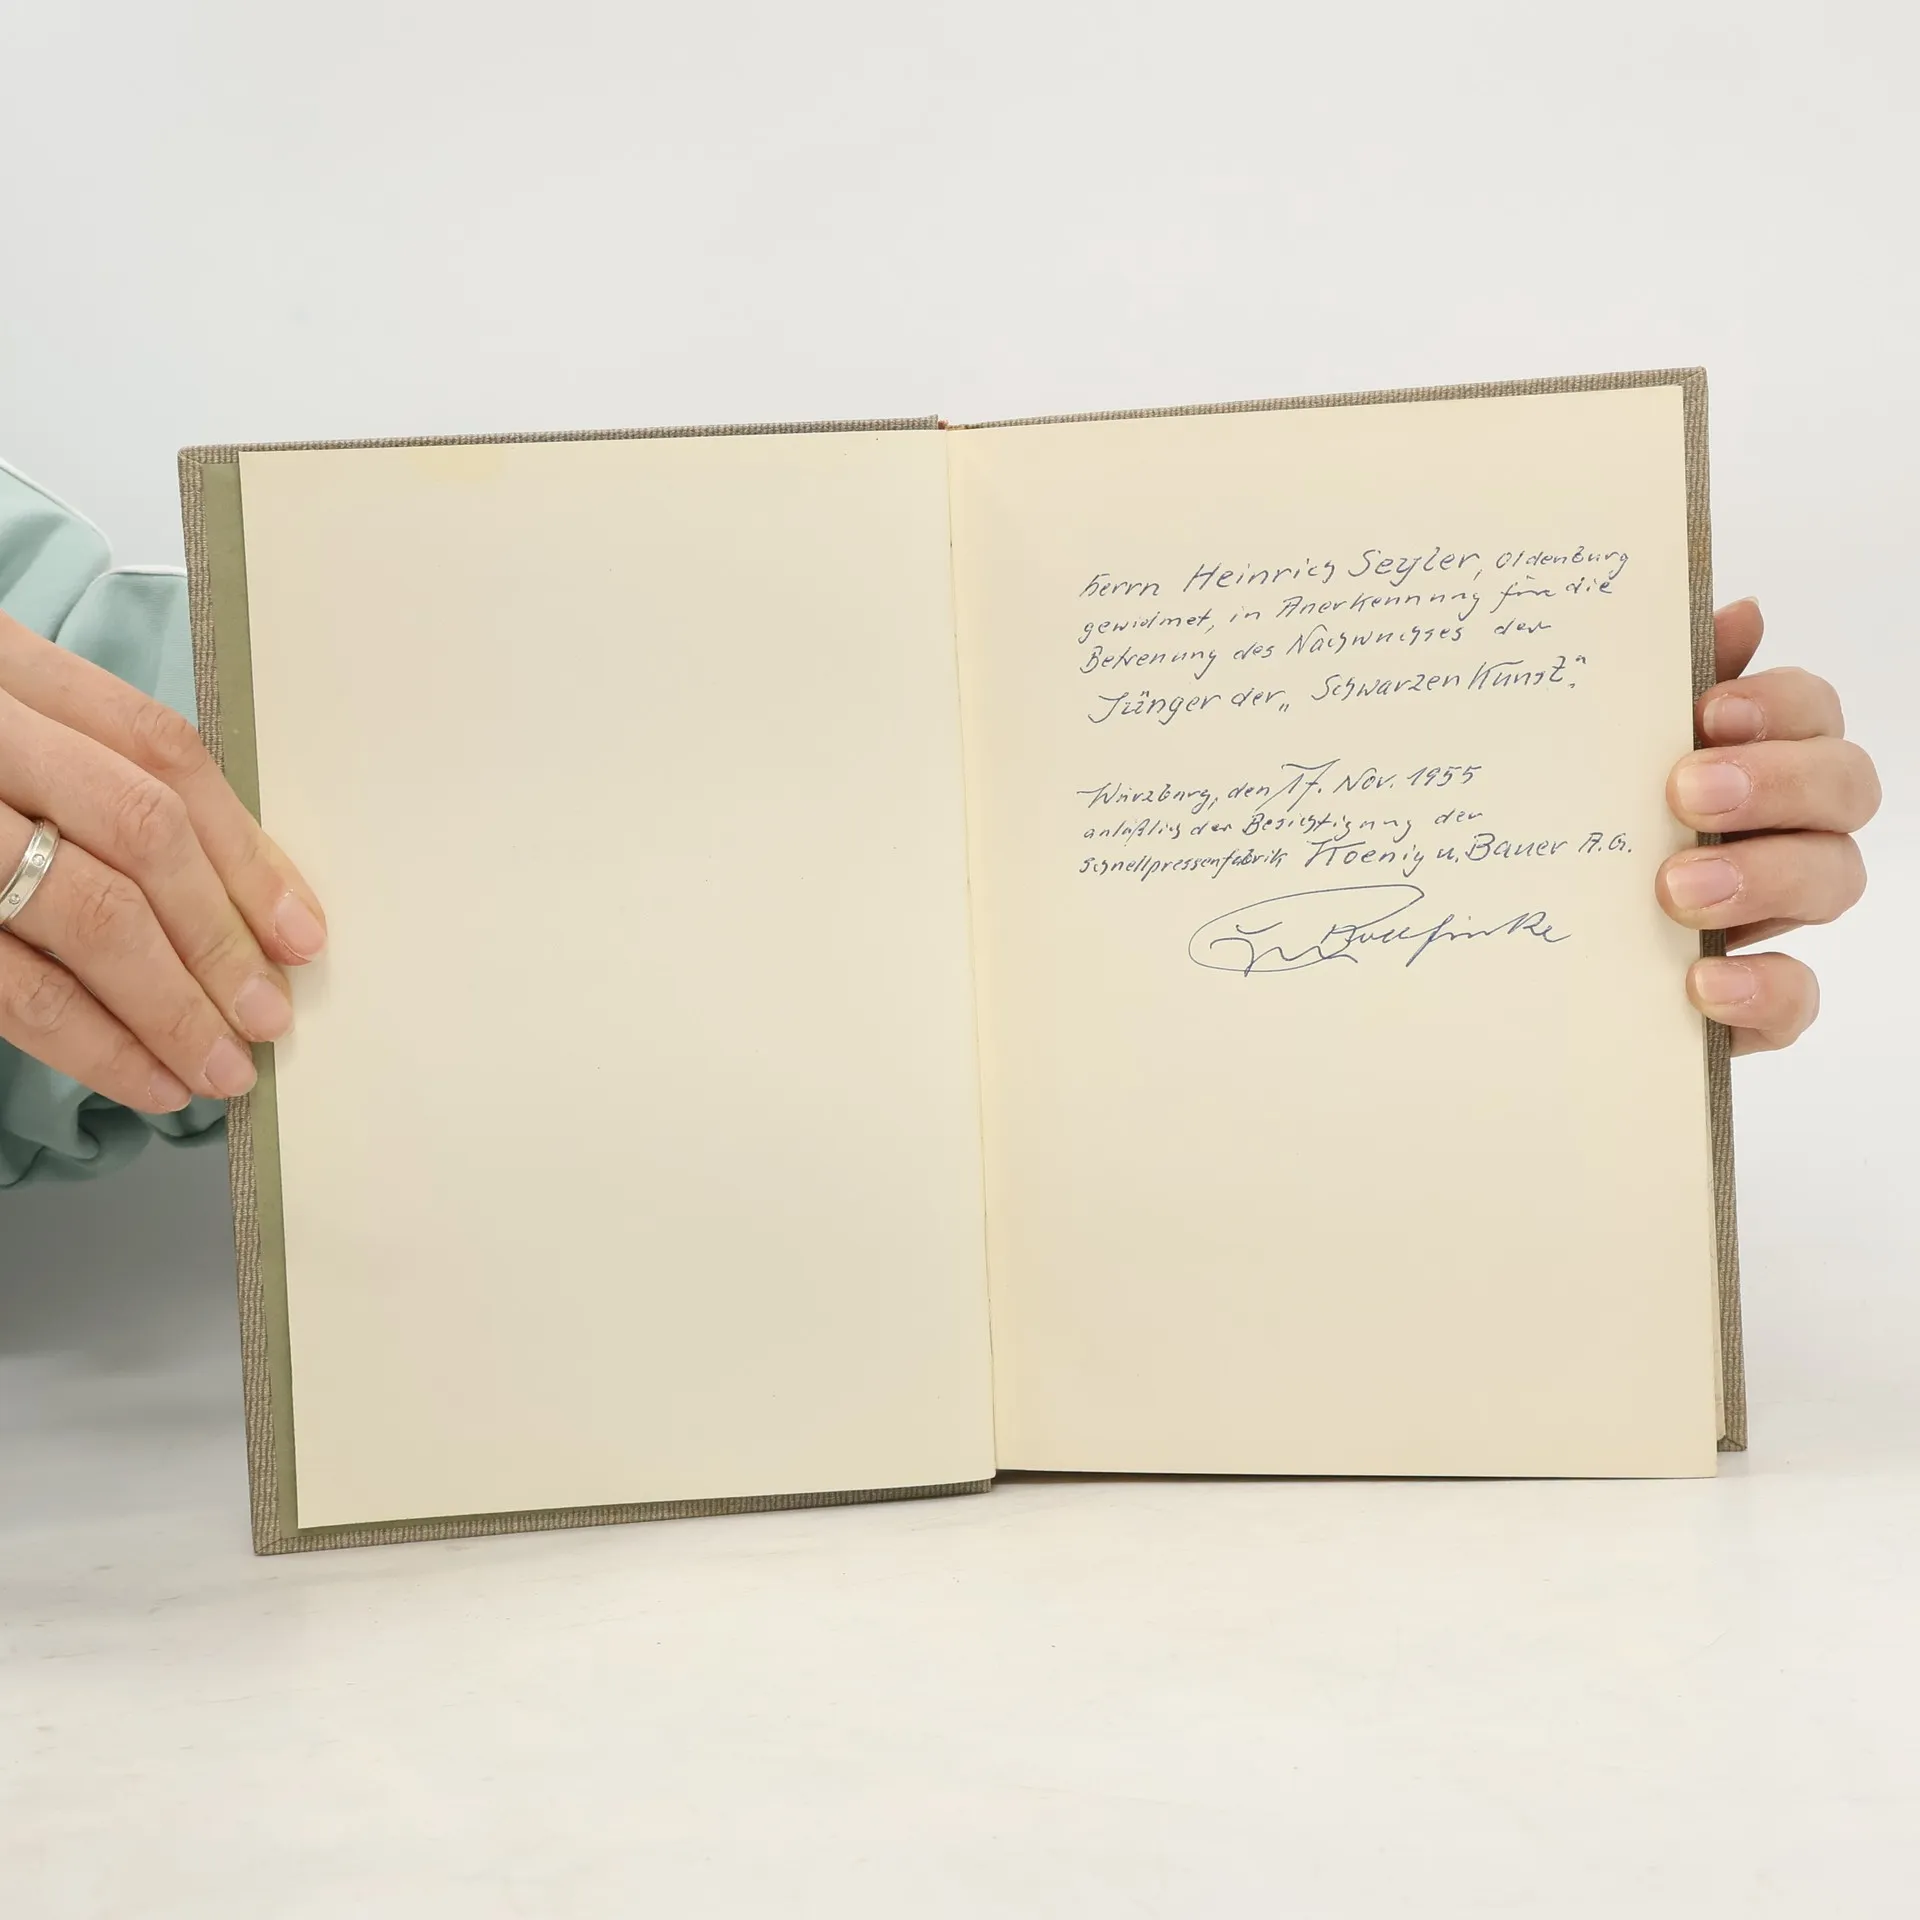 Herrn Heinrich Seyler, Oldenburg
gewidmet, in Anerkennung für die
Betreuung des Nachwuchses der
Jünger der „Schwarzen Kunst“.
Würzburg, den 17. Nov. 1955
anläßlich der Besichtigung der
Schnellpressenfabrik Koenig u. Bauer A.G.